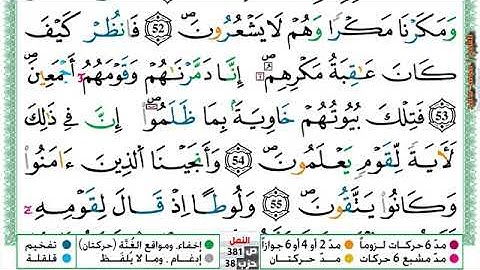 وَمَكَرْنَا مَكْرًا وَهُمْ لَا يَشْعُرُونَ ۝52 فَانْظُرْ كَيْفَ
كَانَ عَاقِبَةُ مَكْرِهِمْ إِنَّا دَمَّرْنَاهُمْ وَقَوْمَهُمْ أَجْمَعِينَ
53 فَتِلْكَ بُيُوتُهُمْ خَاوِيَةً بِمَا ظَلَمُوا إِنَّ فِي ذَلِكَ
لَآيَةً لِقَوْمٍ يَعْلَمُونَ 54 وَأَنْجَيْنَا الَّذِينَ ءَامَنُوا
وَكَانُوا يَتَّقُونَ 55 وَلُوطًا إِذْ قَالَ لِقَوْمِهِ
مدّ 6 حركات لزوماً مدّ 2 أو 4 أو 6 جوازاً النمل ص 381 إخفاء، ومواقع الغُنَّة (حركتان) تفخيم
مدّ مشبع 6 حركات مدّ حركتان حزب 38 إدغام، وما لا يُلفَظ قلقلة